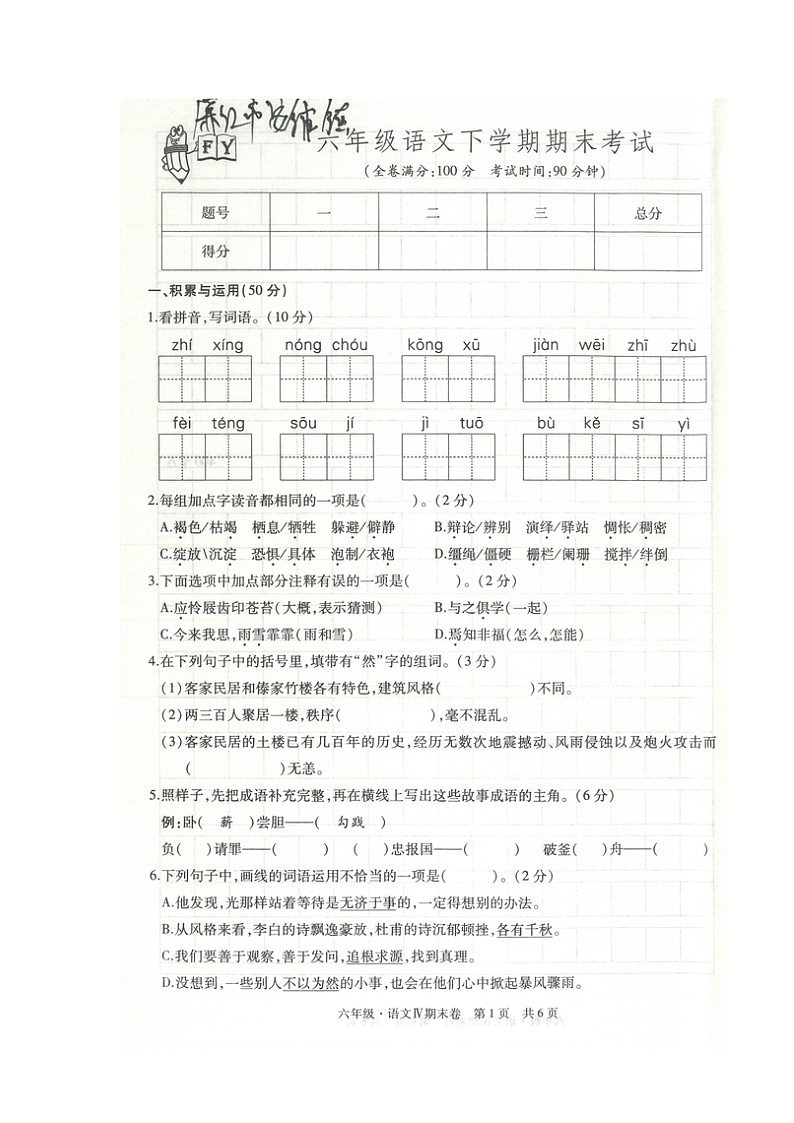 FY
六年级语文下学期期末考试
(全卷满分:100分 考试时间:90分钟)
题号 一 二 三 总分
得分
一、积累与运用(50分)
1.看拼音,写词语。(10分)
zhí xíng nóng chóu kōng xū jiàn wēi zhī zhù
fèi téng sōu jí jì tuō bù kě sī yì
2.每组加点字读音都相同的一项是( )。(2分)
A.褐色/枯竭 栖息/牺牲 躲避/僻静 B.辩论/辨别 演绎/驿站 惆怅/稠密
C.绽放\沉淀 恐惧/具体 泡制/衣袍 D.缰绳/僵硬 栅栏/阑珊 搅拌/绊倒
3.下面选项中加点部分注释有误的一项是( )。(2分)
A.应怜屐齿印苍苔(大概,表示猜测) B.与之俱学(一起)
C.今来我思,雨雪霏霏(雨和雪) D.焉知非福(怎么,怎能)
4.在下列句子中的括号里,填带有“然”字的组词。(3分)
(1)客家民居和傣家竹楼各有特色,建筑风格( )不同。
(2)两三百人聚居一楼,秩序( ),毫不混乱。
(3)客家民居的土楼已有几百年的历史,经历无数次地震撼动、风雨侵蚀以及炮火攻击而
( )无恙。
5.照样子,先把成语补充完整,再在横线上写出这些故事成语的主角。(6分)
例:卧( 薪 )尝胆——( 勾践 )
负( )请罪——( ) ( )忠报国——( ) 破釜( )舟——( )
6.下列句子中,画线的词语运用不恰当的一项是( )。(2分)
A.他发现,光那样站着等待是无济于事的,一定得想别的办法。
B.从风格来看,李白的诗飘逸豪放,杜甫的诗沉郁顿挫,各有千秋。
C.我们要善于观察,善于发问,追根求源,找到真理。
D.没想到,一些别人不以为然的小事,也会在他们心中掀起暴风骤雨。
六年级·语文Ⅳ期末卷 第1页 共6页